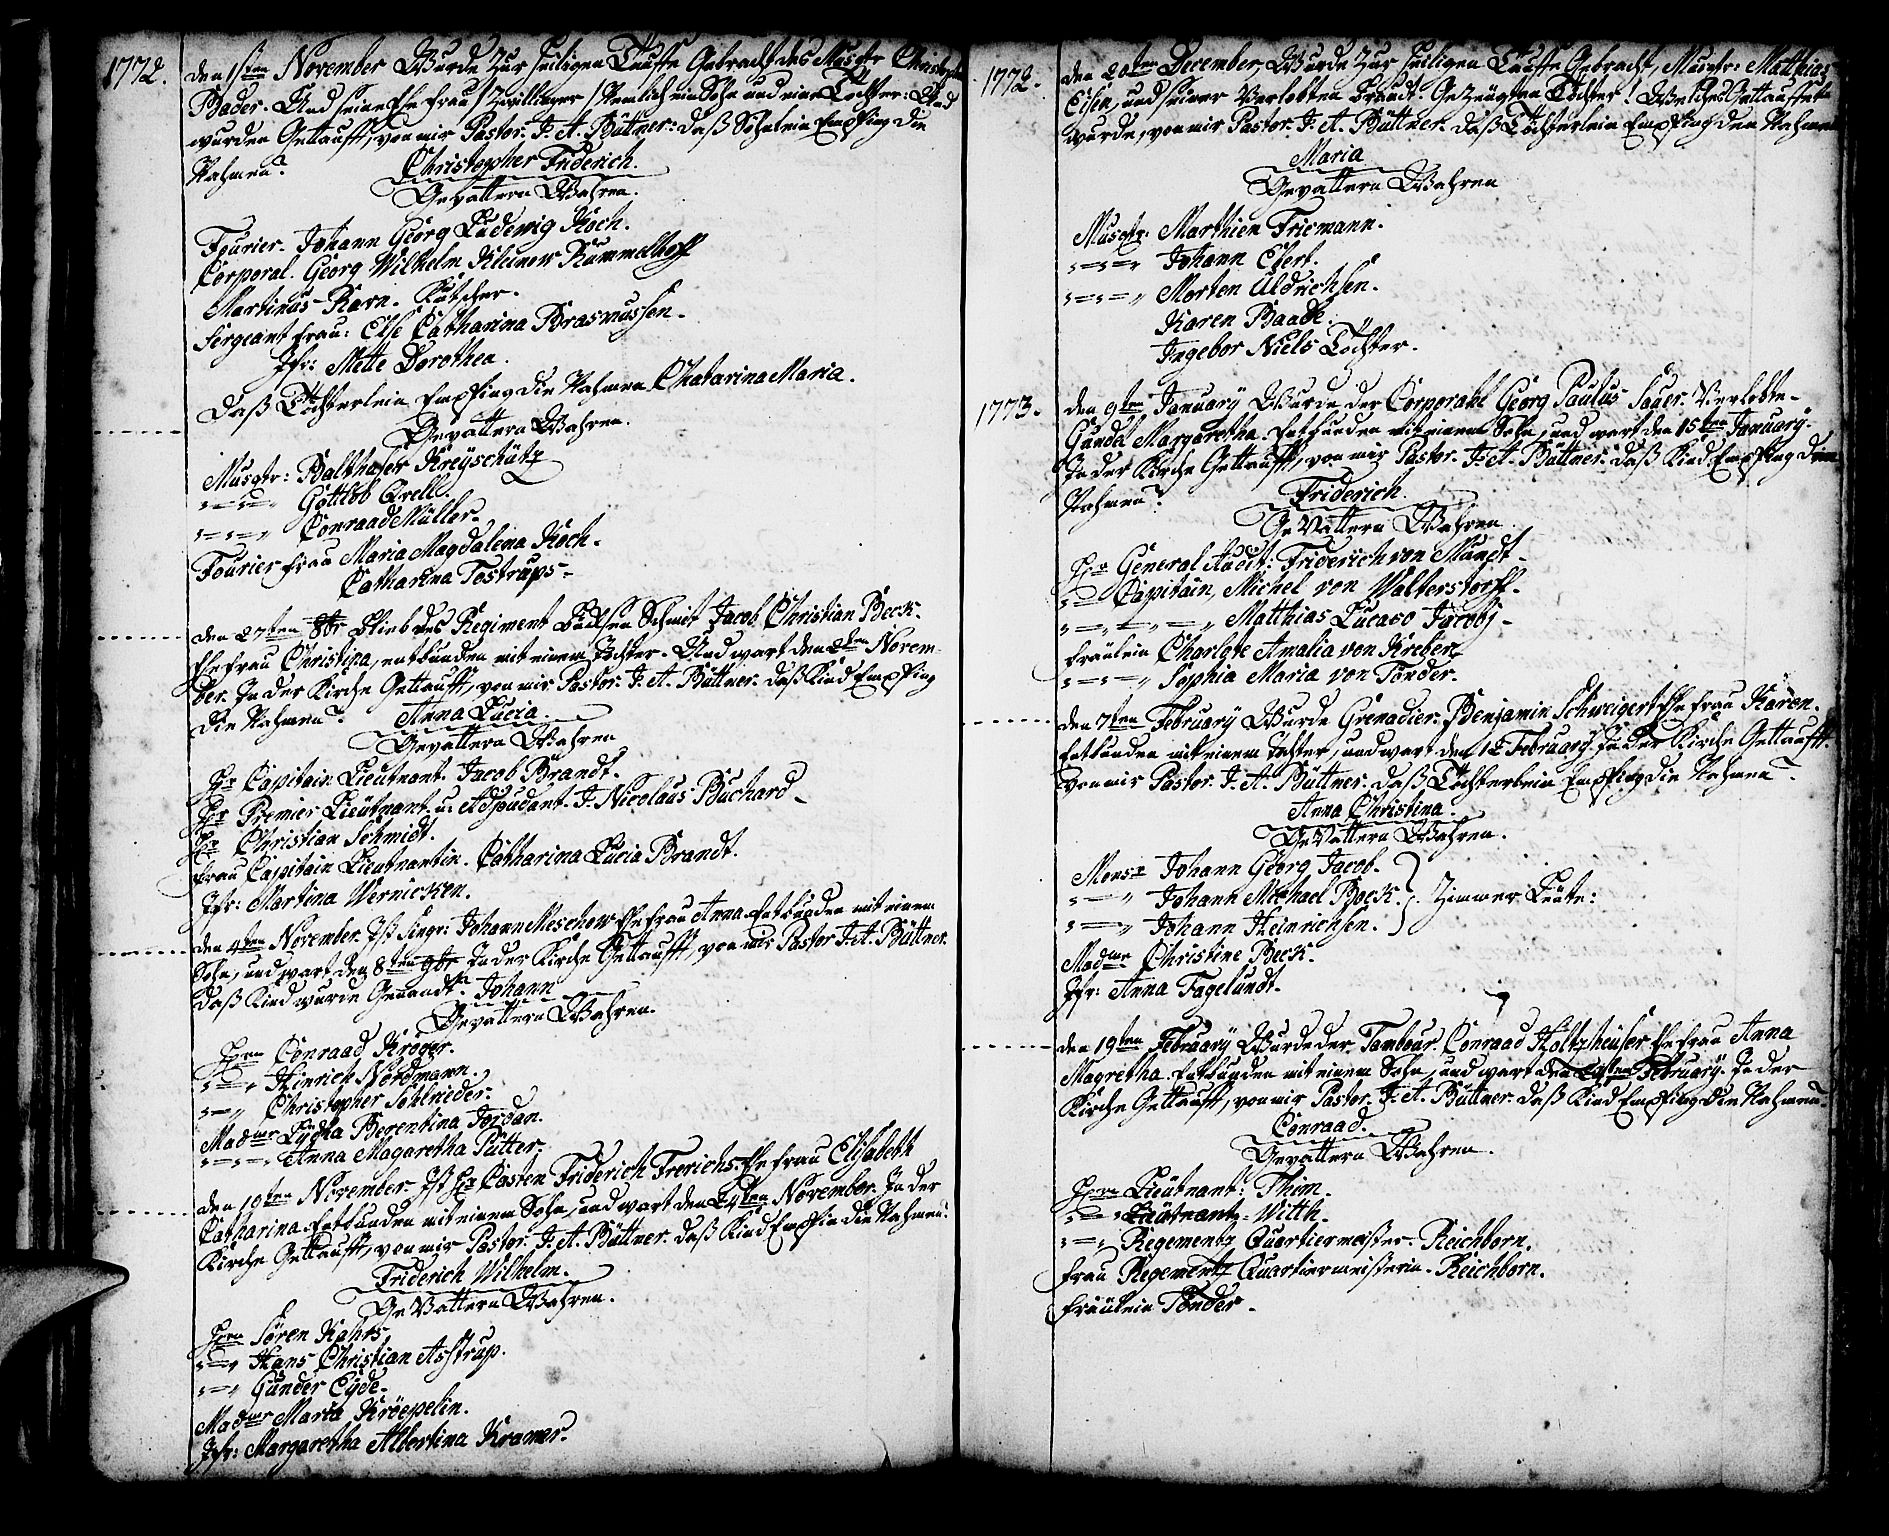 1772. den 1sten November Wurde zur heiligen Tauffe Gebracht des Musqtr Christoph
Bader. Und seine Ehe frau / Zwillinge / Nemlich ein Sohn und eine Tochter: Und
wurden Gettaufft, von mir Pastor. J. A. Büttner: daß Sohnlein Empfing die
Nahmen? Christopher Friderich.
Gevattern Wahren.
Fourier. Johann Georg Ludewig Koch.
Corporal. Georg Wilhelm Kleinow Rummelhoff
Martinus Ravn. Kutscher.
Sergeant frau: Else Catharina Brasmussen.
Jfr: Mette Dorothea.
Daß Töchterlein Empfing die Nahmen Chatarina Maria.
Gevattern Wahren.
Musqtr: Balthaser Kreyschütz
Gottlob Grell.
Conraad Müller.
Fourier frau Maria Magdalena Koch.
Catharina Tostrups.
den 27ten 8br blieb des Regiment Büchsen Schmit Jacob Christian Beck.
Ehefrau Christina, entbunden mit einem Tochter. Und wart den 2ten Novem-
ber. In der Kirche Gettaufft, von mir Pastor. J. A. Büttner. daß Kind Empfing
die Nahmen? Anna Lucia.
Gevattern Wahren
Hr Capitain Lieutnant. Jacob Brandt.
Hr Premier Lieütnant u: Adjudant. J. Nicolaus Buchard
Hr Christian Schmidt.
frau Capitain Lieutnantin. Catharina Lucia Brandt.
Jfr: Martina Wernicken.
den 4ten November. Ist Singr: Johann Meschow Ehe frau Anna Entbunden mit einem
Sohn, und wart den 8ten 9br In der Kirche Gettaufft, von mir Pastor J. A. Büttner.
daß Kind wurde Genandt. Johann
Gevattern Wahren.
Hren Conraad Kröger.
Hinrich Nordmann.
Christopher Schlrieder.
Madme Lydia Berentina Jordan.
Anna Magaretha Pütter.
den 19ten November. Ist Hr Casten Friderich Frerichs. Ehe frau Elisabeth
Catharina Entbunden mit einem Sohn, und wart den 24ten November. In der
Kirche Gettaufft, von mir Pastor. J. A. Büttner. daß Kind Empfin die Nahmen:
Friderich Wilhelm.
GeVattern Wahren.
Hren Sören Kahrs
Hans Christian Astrup.
Gunder Eyde.
Madme Maria Kröepelin.
Jfr: Margaretha Albertina Kramer.
1772. den 20ten December, Wurde zur heiligen Tauffe Gebracht, Musqtr: Matthias
Eisen, und seiner Verlobten Braudt. Gezeugten Tochter! Welches Gettauffet
wurde, von mir Pastor. J. A. Büttner. daß Töchterlein Empfing den Nahmen
Maria
Gevattern Wahren
Musqtr: Marthien Friemann.
Johann Efert.
Morten Uldrichsen.
Karen Baade.
Ingebor Niels Tochter.
1773. den 9ten January Wurde der Corporahl Georg Paulus Sauer. Verlobte.
Gundal Margaretha. Entbunden mit einem Sohn, und wart den 15ten January.
In der Kirche Gettaufft, von mir Pastor. J. A. Büttner. daß Kind Empfing den
Nahmen? Friderich.
GeVattern Wahren.
Hr General Audit: Friderich von Mundt.
Capitain, Michel von Walterstorff.
Matthias Lucaso Jacobj.
Fräulein Charlote Amalia von Kreber
Sophia Maria von Tönder.
den 7ten February Wurde Grenadier. Benjamin Schweigert Ehe frau Karen.
Entbunden mit einem Tochter, und wart den 12 February. In der Kirche Gettaufft.
Von mir Pastor. J. A. Büttner. daß Töchterlein Empfing die Nahmen?
Anna Christina.
GeVattern Wahren.
Monsr Johann Georg Jacob.
Johann Michael Beck. Zimmer Leute:
Johann Heinrichsen.
Madme Christine Beck.
Jfr: Anna Fagelundt.
den 19ten February Wurde der Tambour Conraad Holtzheuser Ehe frau Anna
Magretha. Entbunden mit einem Sohn, und wart den February. In der
Kirche Gettaufft, von mir Pastor. J. A. Büttner. daß Kind Empfing die Nahmen.
Conraad.
Gevattern Wahren.
Hren Lieütnant: Thim.
Lieütnant: Witth.
Regementz Quartiermeister. Reichborn.
Frau Regementz Quartiermeisterin. Reichborn.
Fräulein Tönder.